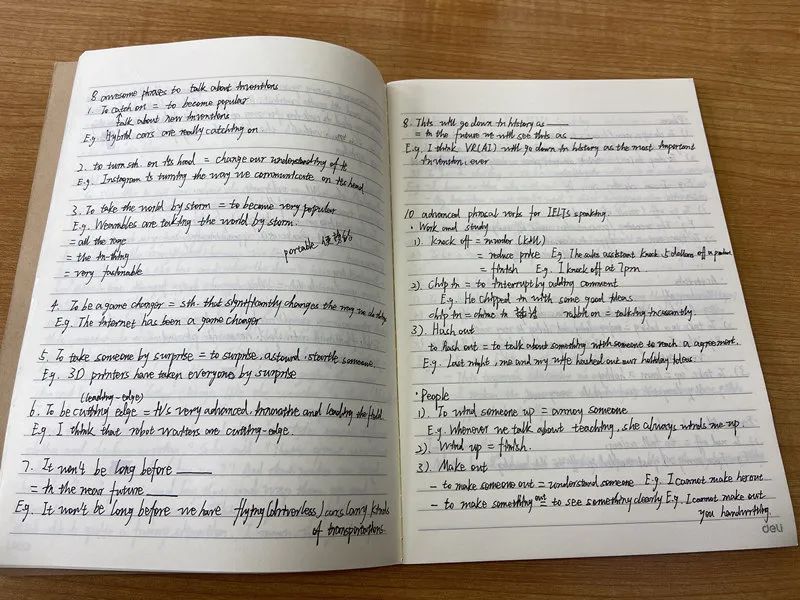 8 awesome phrases to talk about inventions
1. To catch on = to become popular
↑ talk about new inventions
E.g. Hybrid cars are really catching on
2. to turn sth. on its head = change our understanding of it
E.g. Instagram is turning the way we communicate on its head
3. To take the world by storm = to become very popular
E.g. Wearables are talking the world by storm.
= all the rage
= the in-thing
portable 便携的
= very fashionable
4. To be a game changer = sth. that significantly changes the way we do things
E.g. The internet has been a game changer
5. To take someone by surprise = to surprise, astound, startle someone.
E.g. 3D printers have taken everyone by surprise
(leading-edge)
6. To be cutting edge = it's very advanced, innovative and leading the field
E.g. I think that robot waiters are cutting-edge.
7. It won't be long before ____
= in the near future ____
E.g. It won't be long before we have flying (driverless) cars (any kinds
of transportations
8. This will go down in history as ____
= in the future we will see this as ____
E.g. I think VR(AI) will go down in history as the most important
invention, ever
10 advanced phrasal verbs for IELTs speaking.
· Work and study
1). Knock off = murder (kill)
= reduce price E.g. The sales assistant knock 5 dollars off
= finish E.g. I knock off at 7pm.
2). Chip in = to interrupt by adding comment
E.g. He chipped in with some good ideas
chip in = chime in 插话 rabbit on = talking incessantly.
3). Hash out
to hash out = to talk about something with someone to reach a agreement.
E.g. Last night, me and my wife hashed out our holiday ideas.
· People
1). To wind someone up = annoy someone
E.g. Whenever we talk about teaching, she always winds me up.
2). Wind up = finish.
3). Make out
- to make someone out = understand someone E.g. I cannot make her out
- to make something out = to see something clearly E.g. I cannot make out
you handwriting.
deli